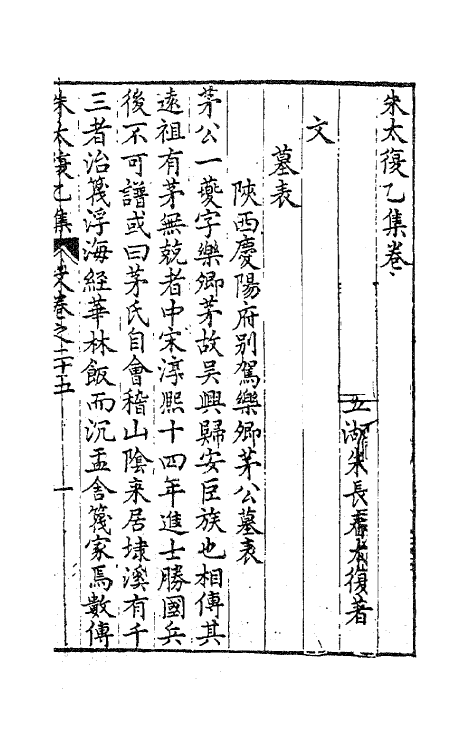 朱太復乙集卷
五湖朱長春太復著
文
墓表
陝西慶陽府別駕樂卿茅公墓表
茅公一夔字樂卿茅故吳興歸安巨族也相傳其
遠祖有茅無兢者中宋淳熙十四年進士勝國兵
後不可譜或曰茅氏自會稽山陰來居埭溪有千
三者治篾浮海經華林飯而沉盂舍篾家焉數傳
朱太復乙集 文卷之二十五 一